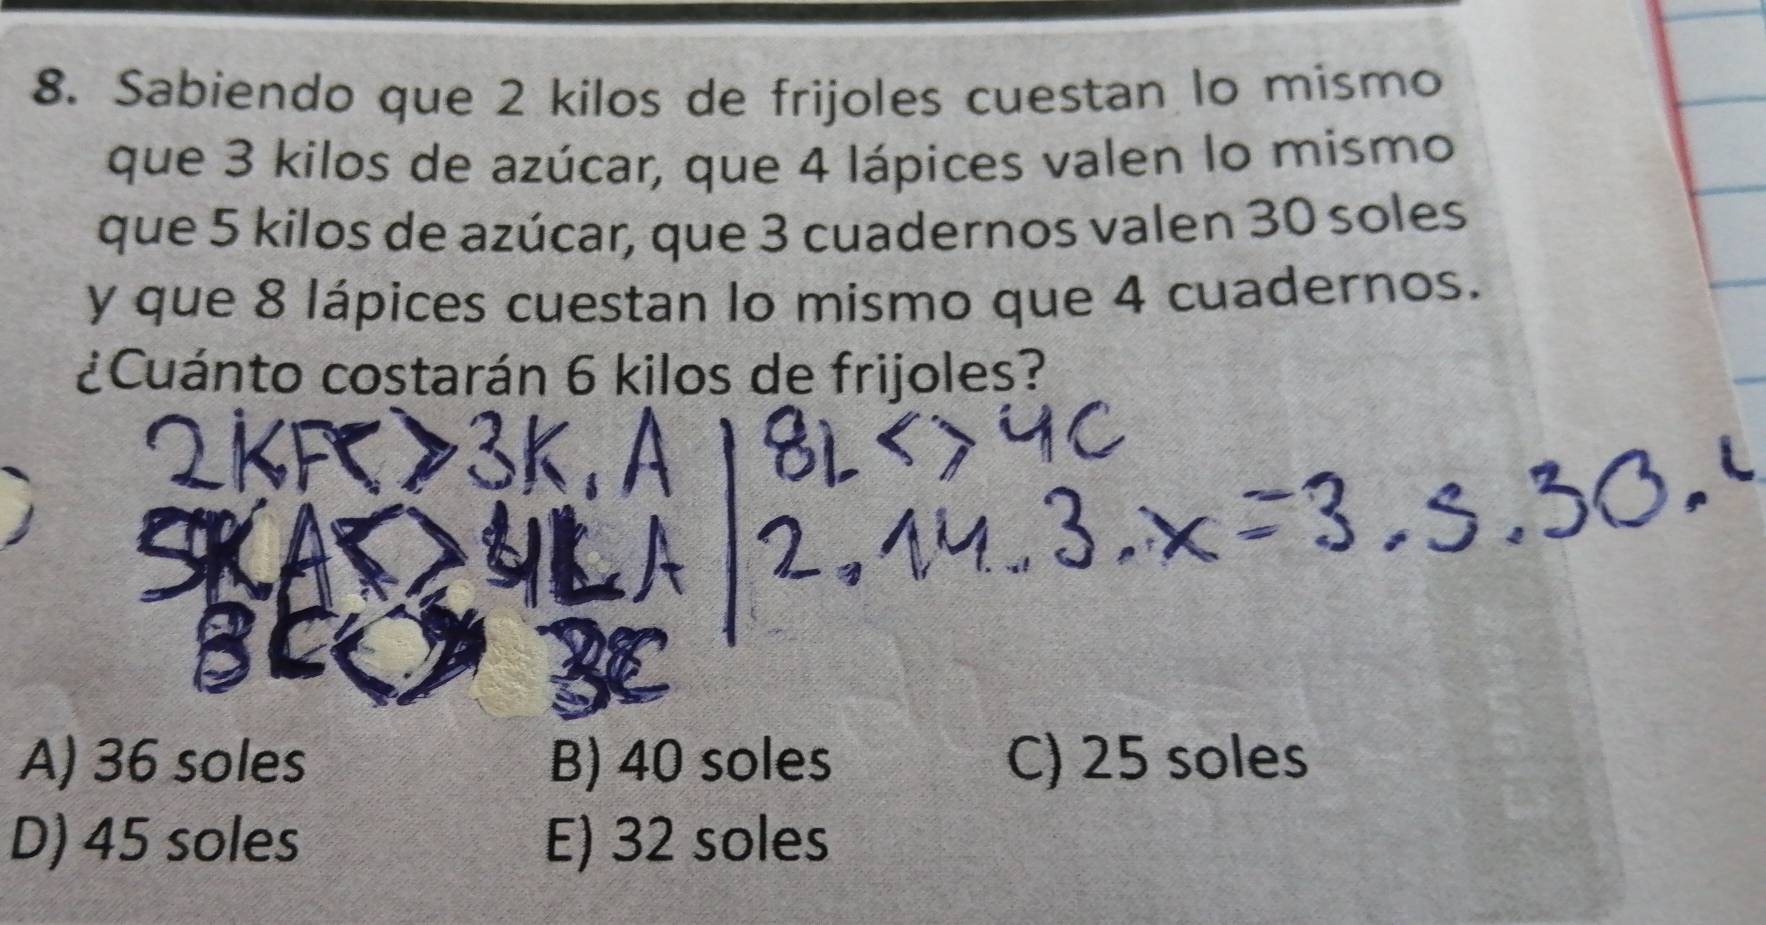 8. Sabiendo que 2 kilos de frijoles cuestan lo mismo
que 3 kilos de azúcar, que 4 lápices valen lo mismo
que 5 kilos de azúcar, que 3 cuadernos valen 30 soles
y que 8 lápices cuestan lo mismo que 4 cuadernos.
¿Cuánto costarán 6 kilos de frijoles?
2KF<>3K.A | 8L<>4C
5KA<>4LA | 2.14.3.x=3.5.30.
3C
A) 36 soles B) 40 soles C) 25 soles
D) 45 soles E) 32 soles